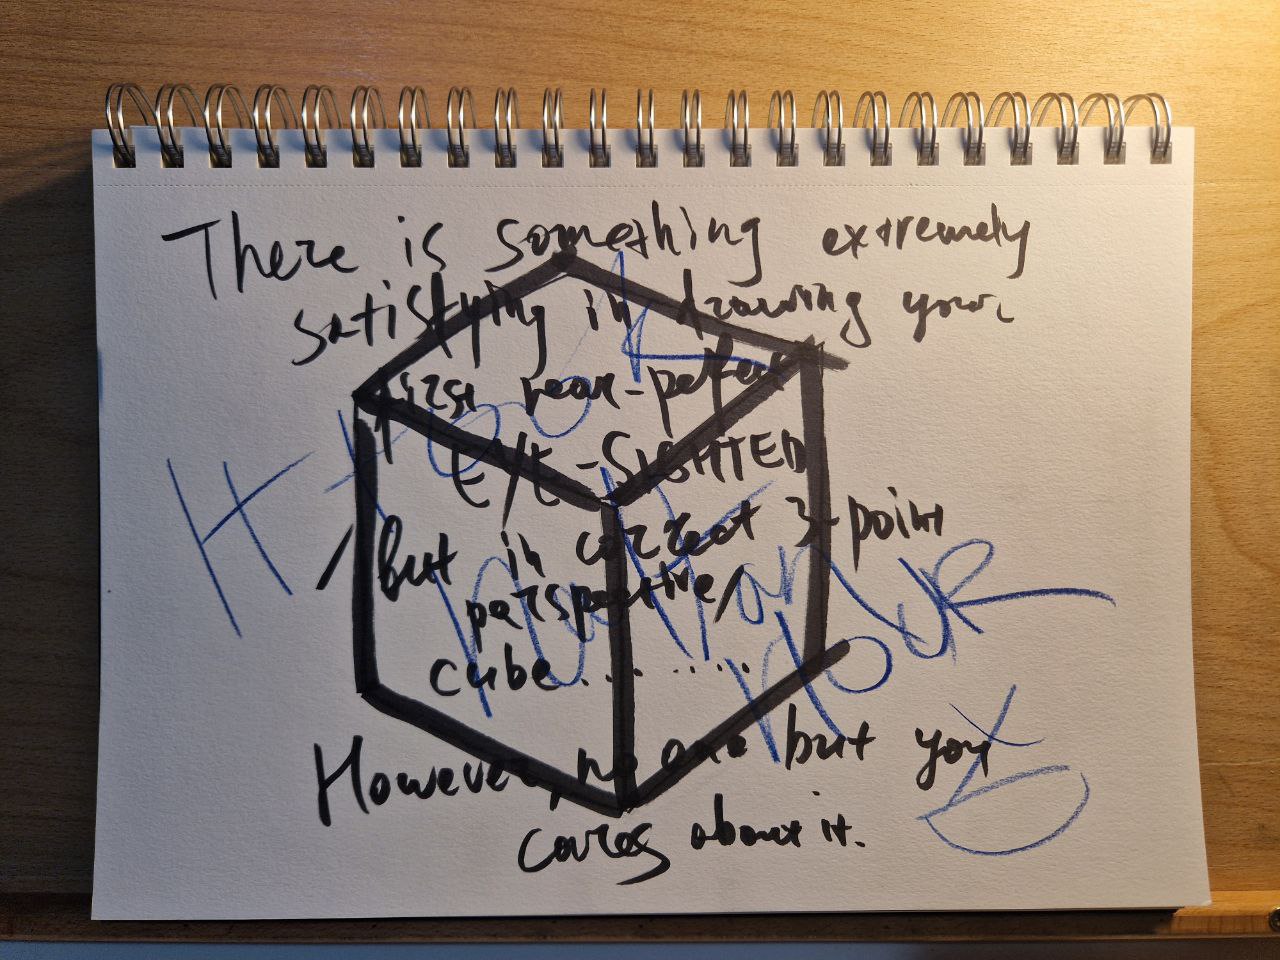 There is something extremely
satisfying in drawing your
first near-perfect
EYE-SIGHTED
/but in correct 3-point
perspective/
cube.... ....
However, no one but you
cares about it.
IT TOOK
HALF an
HOUR
XD